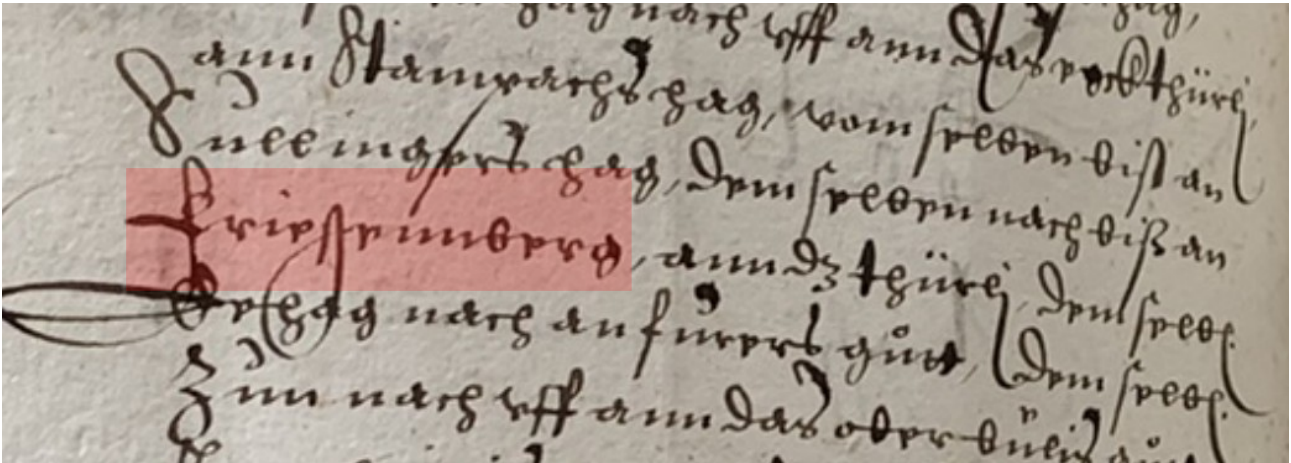 hag nach vff ann das eckthürli,
ann Stamrachs hag, vom selben biß an
Bullingers hag, dem selben nach biß an
Friesennberg, ann dz thürli, dem selb.
Gehag nach an furers gůtt, dem selb.
Zun nach vff ann das ober